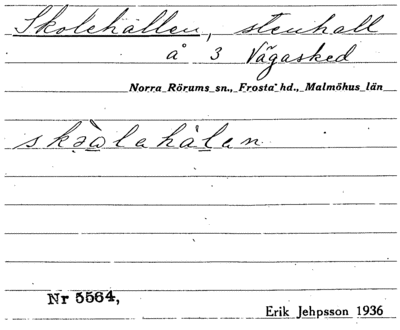 Skolehallen, stenhall
å 3 Vägasked
Norra Rörums sn., Frosta hd., Malmöhus län
Nr 5564,
Erik Jehpsson 1936